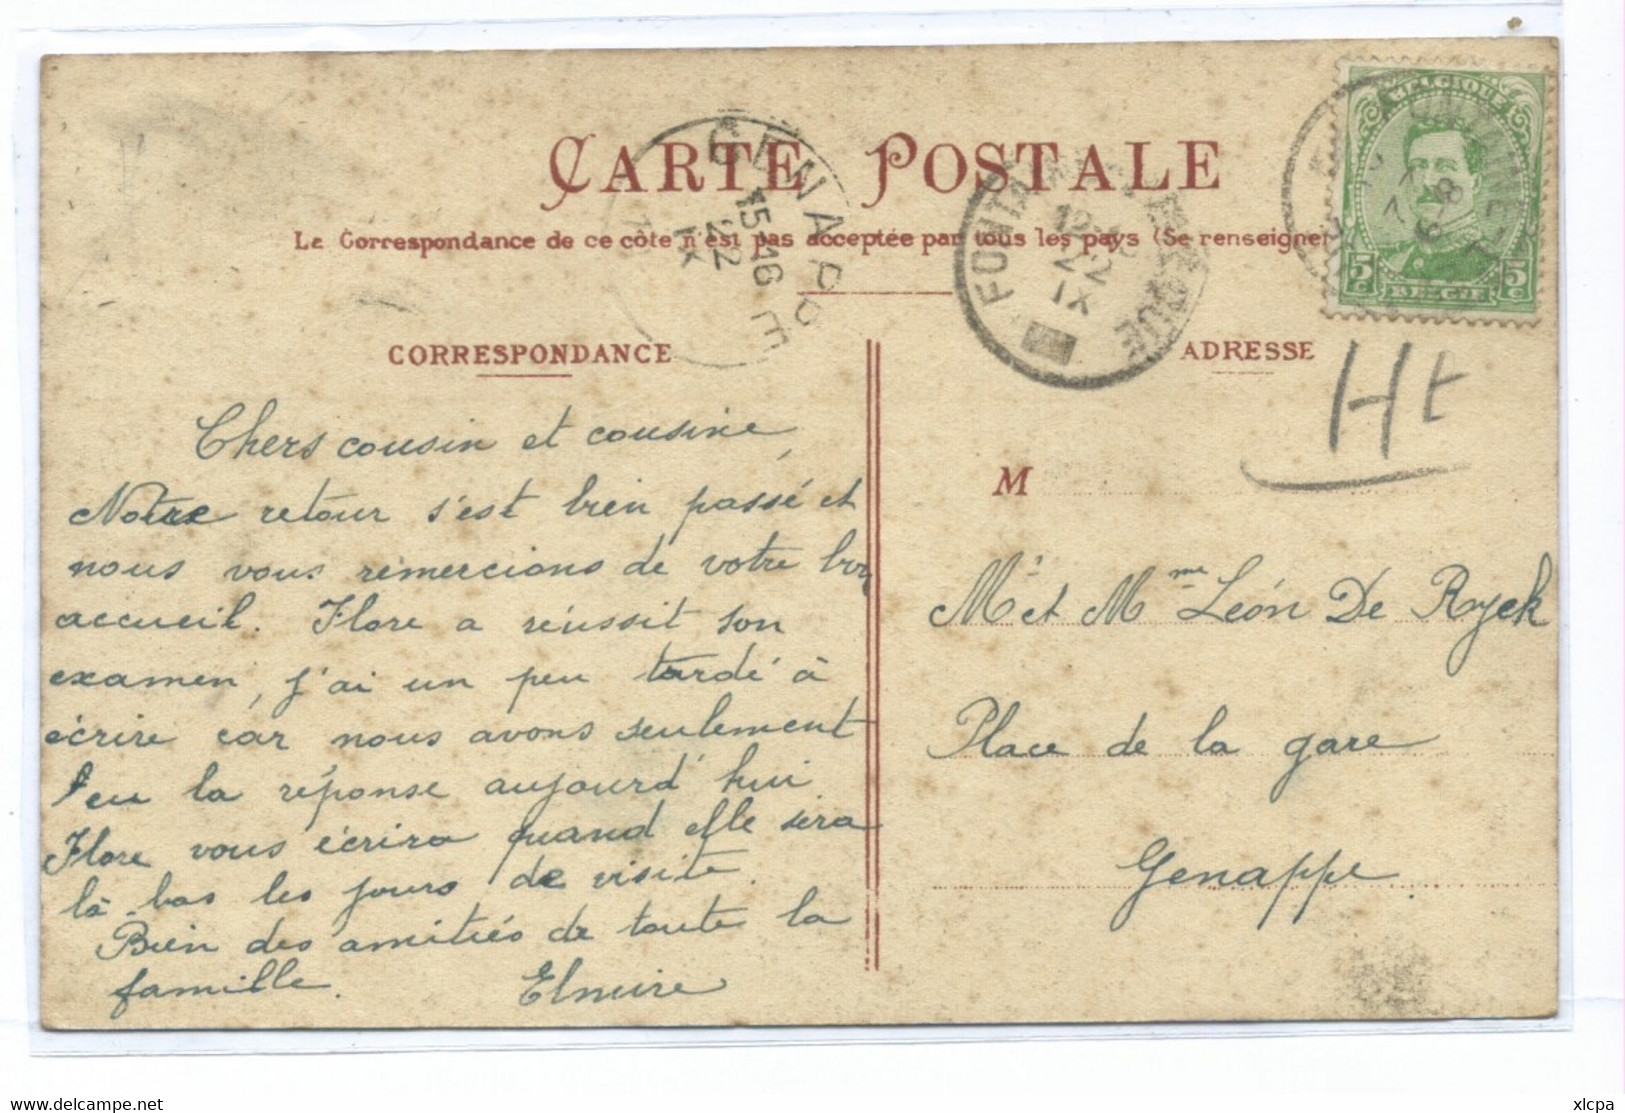 CARTE POSTALE
La Correspondance de ce côté n'est pas acceptée par tous les pays (Se renseigner
GENAPPE
15-16
22
IX
FONTAINE-L'EVEQUE
22
IX
BELGIQUE
5c 5c
BELGIE
CORRESPONDANCE
ADRESSE
Ht
Chers cousin et cousine,
Notre retour s'est bien passé et
nous vous rémercions de votre bon
accueil. Flore a réussit son
examen, j'ai un peu tardé à
écrire car nous avons seulement
eu la réponse aujourd'hui.
Flore vous écrira quand elle sera
là-bas les jours de visite.
Bien des amitiés de toute la
famille. Elmire
M
Mr et Mme Léon De Ryck
Place de la gare
Genappe.
www.delcampe.net
xlcpa